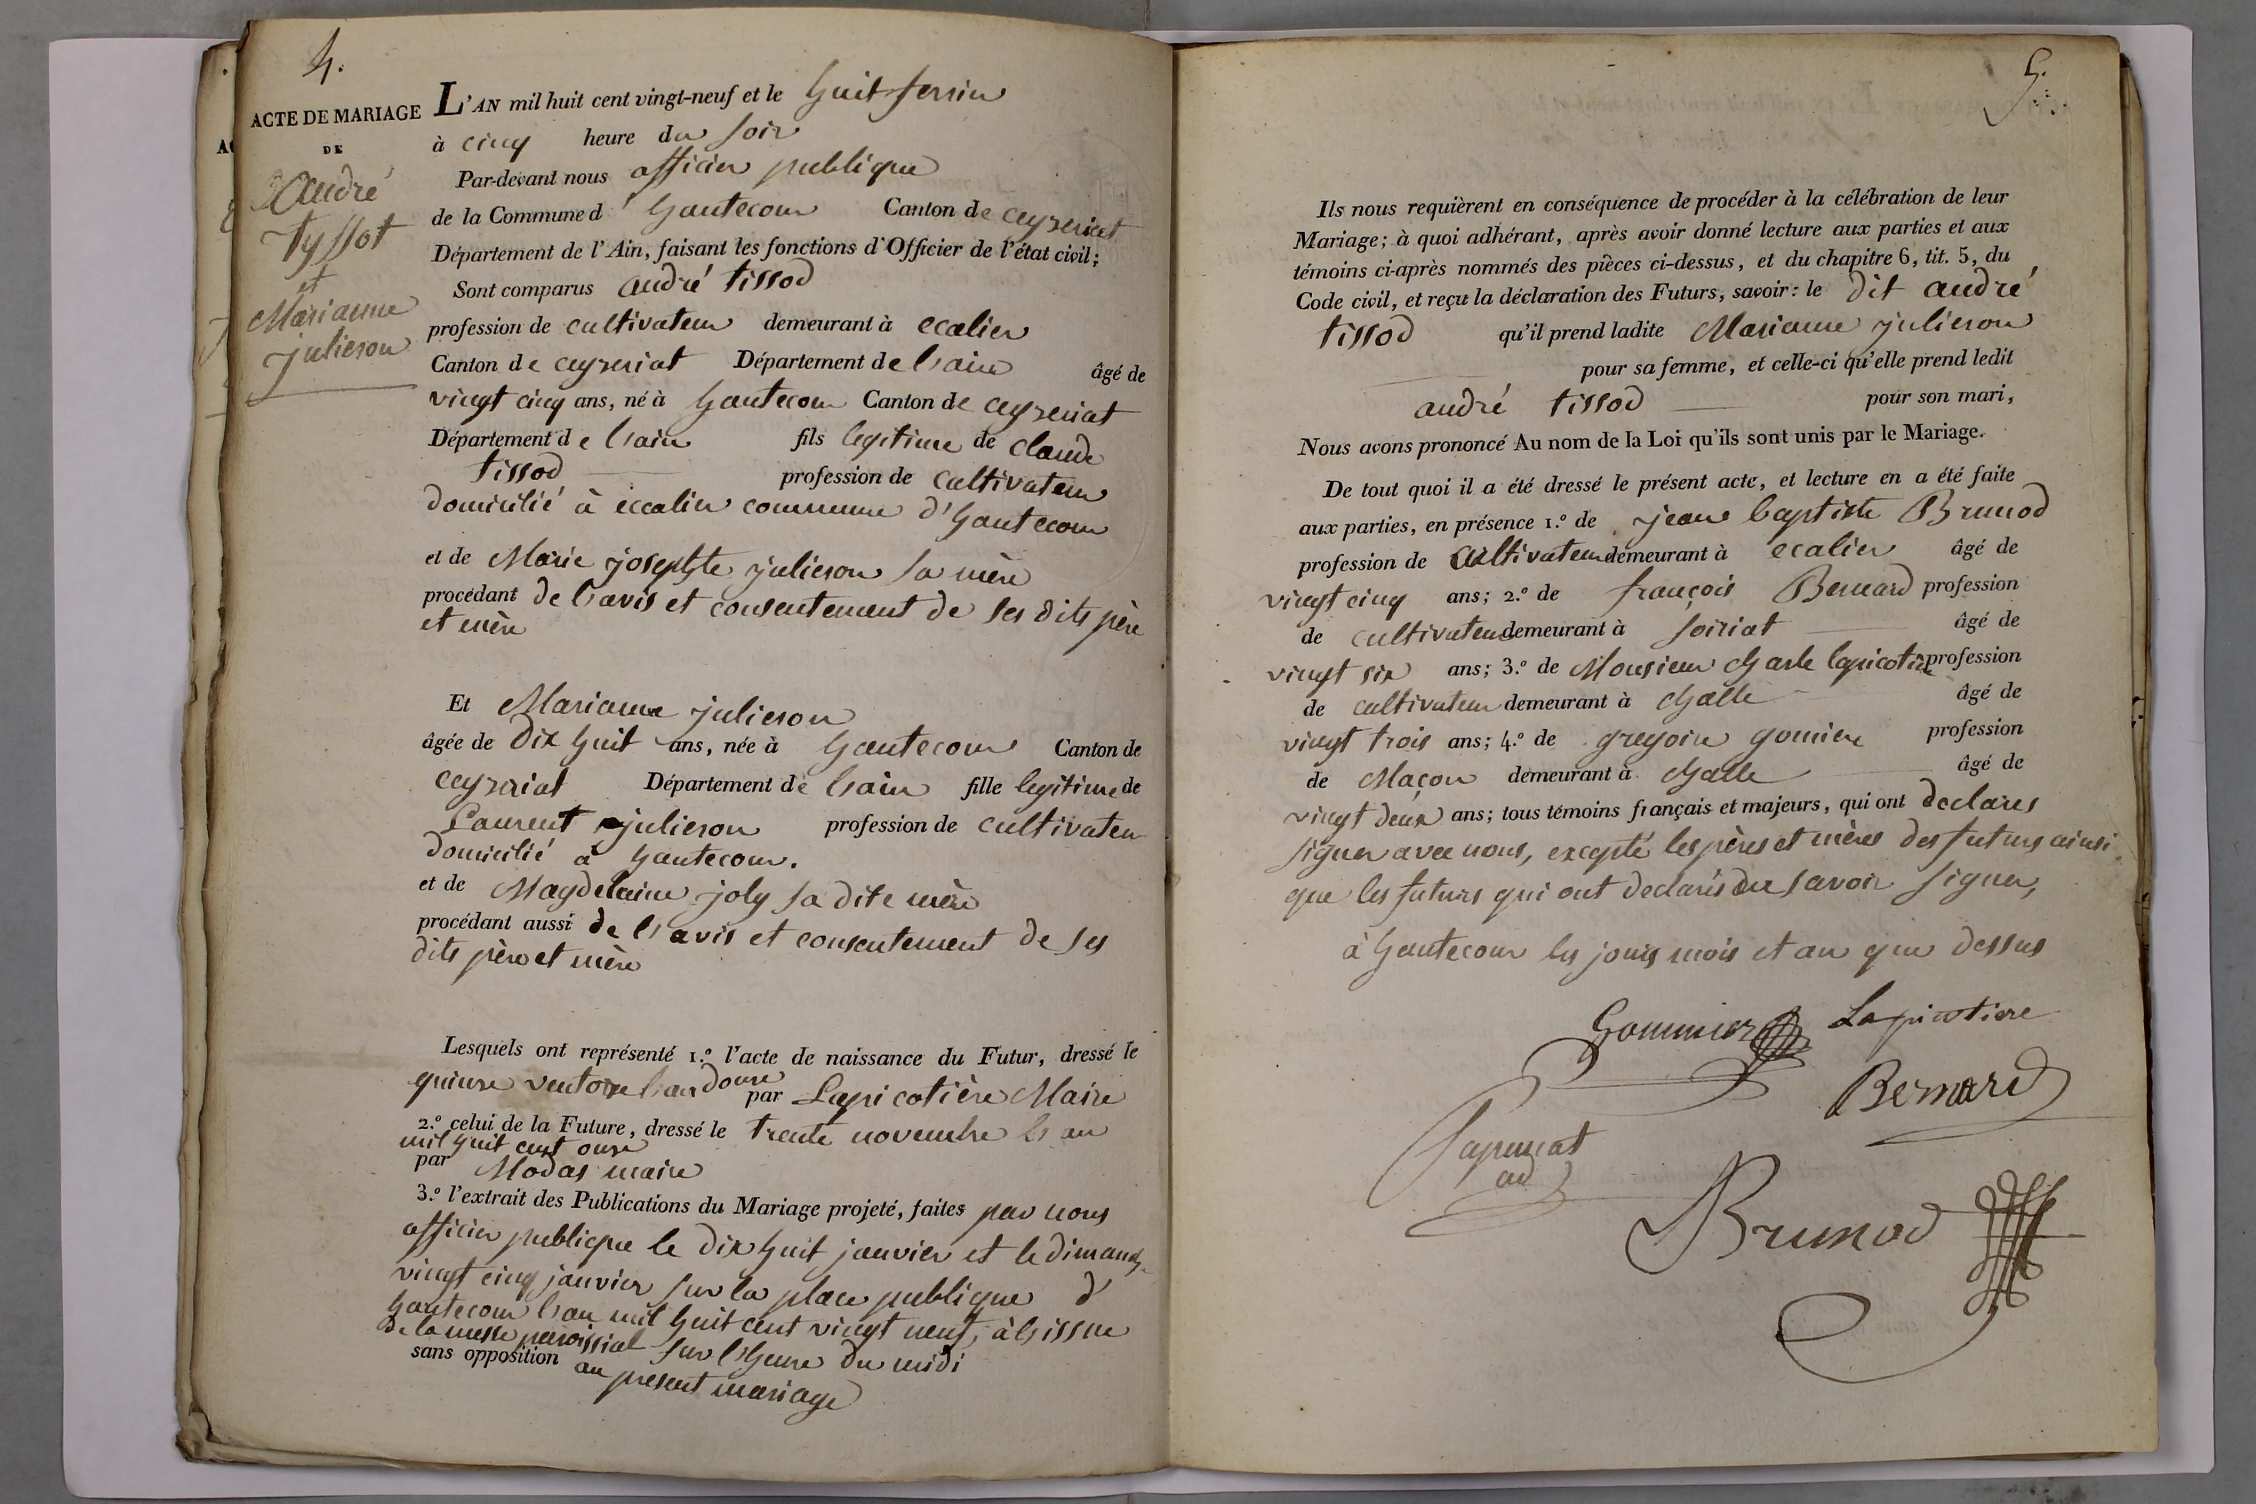 4.
ACTE DE MARIAGE
DE
André
tyssot
et
Marianne
julieron
L'AN mil huit cent vingt-neuf et le huit ferrier
à cinq heure du soir
Par-devant nous officier publique
de la Commune d'hautecour Canton de ceyzeriat
Département de l'Ain, faisant les fonctions d'Officier de l'état civil;
Sont comparus andré tissod
profession de cultivateur demeurant à ecalier
Canton de ceyzeriat Département de l'ain âgé de
vingt cinq ans, né à hautecour Canton de ceyzeriat
Département de l'ain fils legitime de claude
tissod profession de cultivateur
domicilié à eccalier commune d'hautecour
et de Marie josephte julieron sa mère
procédant de l'avis et consentement de ses dits père
et mère
Et Marianne julieron
âgée de dix huit ans, née à hautecour Canton de
ceyzeriat Département de l'ain fille legitime de
Laurent julieron profession de cultivateur
domicilié à hautecour.
et de Magdelaine joly sa dite mère
procédant aussi de l'avis et consentement de ses
dits père et mère
Lesquels ont représenté 1.º l'acte de naissance du Futur, dressé le
quinze ventose l'an douze par Lapicotière Maire
2.º celui de la Future, dressé le trente novembre l'an
mil huit cent onze
par Modas maire
3.º l'extrait des Publications du Mariage projeté, faites par nous
officier publique le dix huit janvier et le dimanch
vingt cinq janvier sur la place publique d'
hautecour l'an mil huit cent vingt neuf, à l'issue
de la messe paroissial sur l'heure du midi
sans opposition au present mariage
5.
Ils nous requièrent en conséquence de procéder à la célébration de leur
Mariage; à quoi adhérant, après avoir donné lecture aux parties et aux
témoins ci-après nommés des pièces ci-dessus, et du chapitre 6, tit. 5, du
Code civil, et reçu la déclaration des Futurs, savoir: le dit andré
tissod qu'il prend ladite Marianne julieron
pour sa femme, et celle-ci qu'elle prend ledit
andré tissod pour son mari,
Nous avons prononcé Au nom de la Loi qu'ils sont unis par le Mariage.
De tout quoi il a été dressé le présent acte, et lecture en a été faite
aux parties, en présence 1.º de jean baptiste Brunod
profession de cultivateur demeurant à ecalier âgé de
vingt cinq ans; 2.º de françois Bernard profession
de cultivateur demeurant à soiriat âgé de
vingt six ans; 3.º de Monsieur charle lapicotire profession
de cultivateur demeurant à challe âgé de
vingt trois ans; 4.º de gregoire gomier profession
de Maçon demeurant à challe âgé de
vingt deux ans; tous témoins français et majeurs, qui ont declarés
signer avec nous, excepté les pères et mères des futurs ainsi
que les futurs qui ont declarés savoir signer,
à hautecour les jours mois et an que dessus
Gommier Lapicotiere
Bernard
ad
Brunod